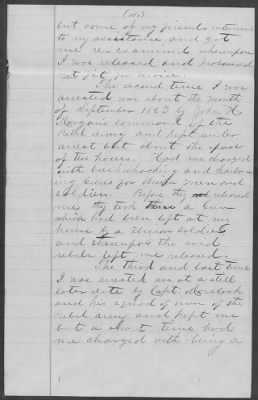 but some of my friends
to my assistance and got
me
I was released and pronounced
not fit for service.
The second time I was
arrested was about the month
of September 1863 by John H
Morgan's command of the
rebel army and kept under
arrest but about the space
of two hours. Had me charged
with bushwhacking and harbor
ing Guns for Union men and
soldiers. Before they released
me they took a Gun
which had been left at my
house by a Union soldier
and thereupon the said
rebels left me released.
The third and last time
I was arrested was at a still
later date by Capt.
and his squad of men of the
rebel army and kept me
but a short time had
me charged with being a